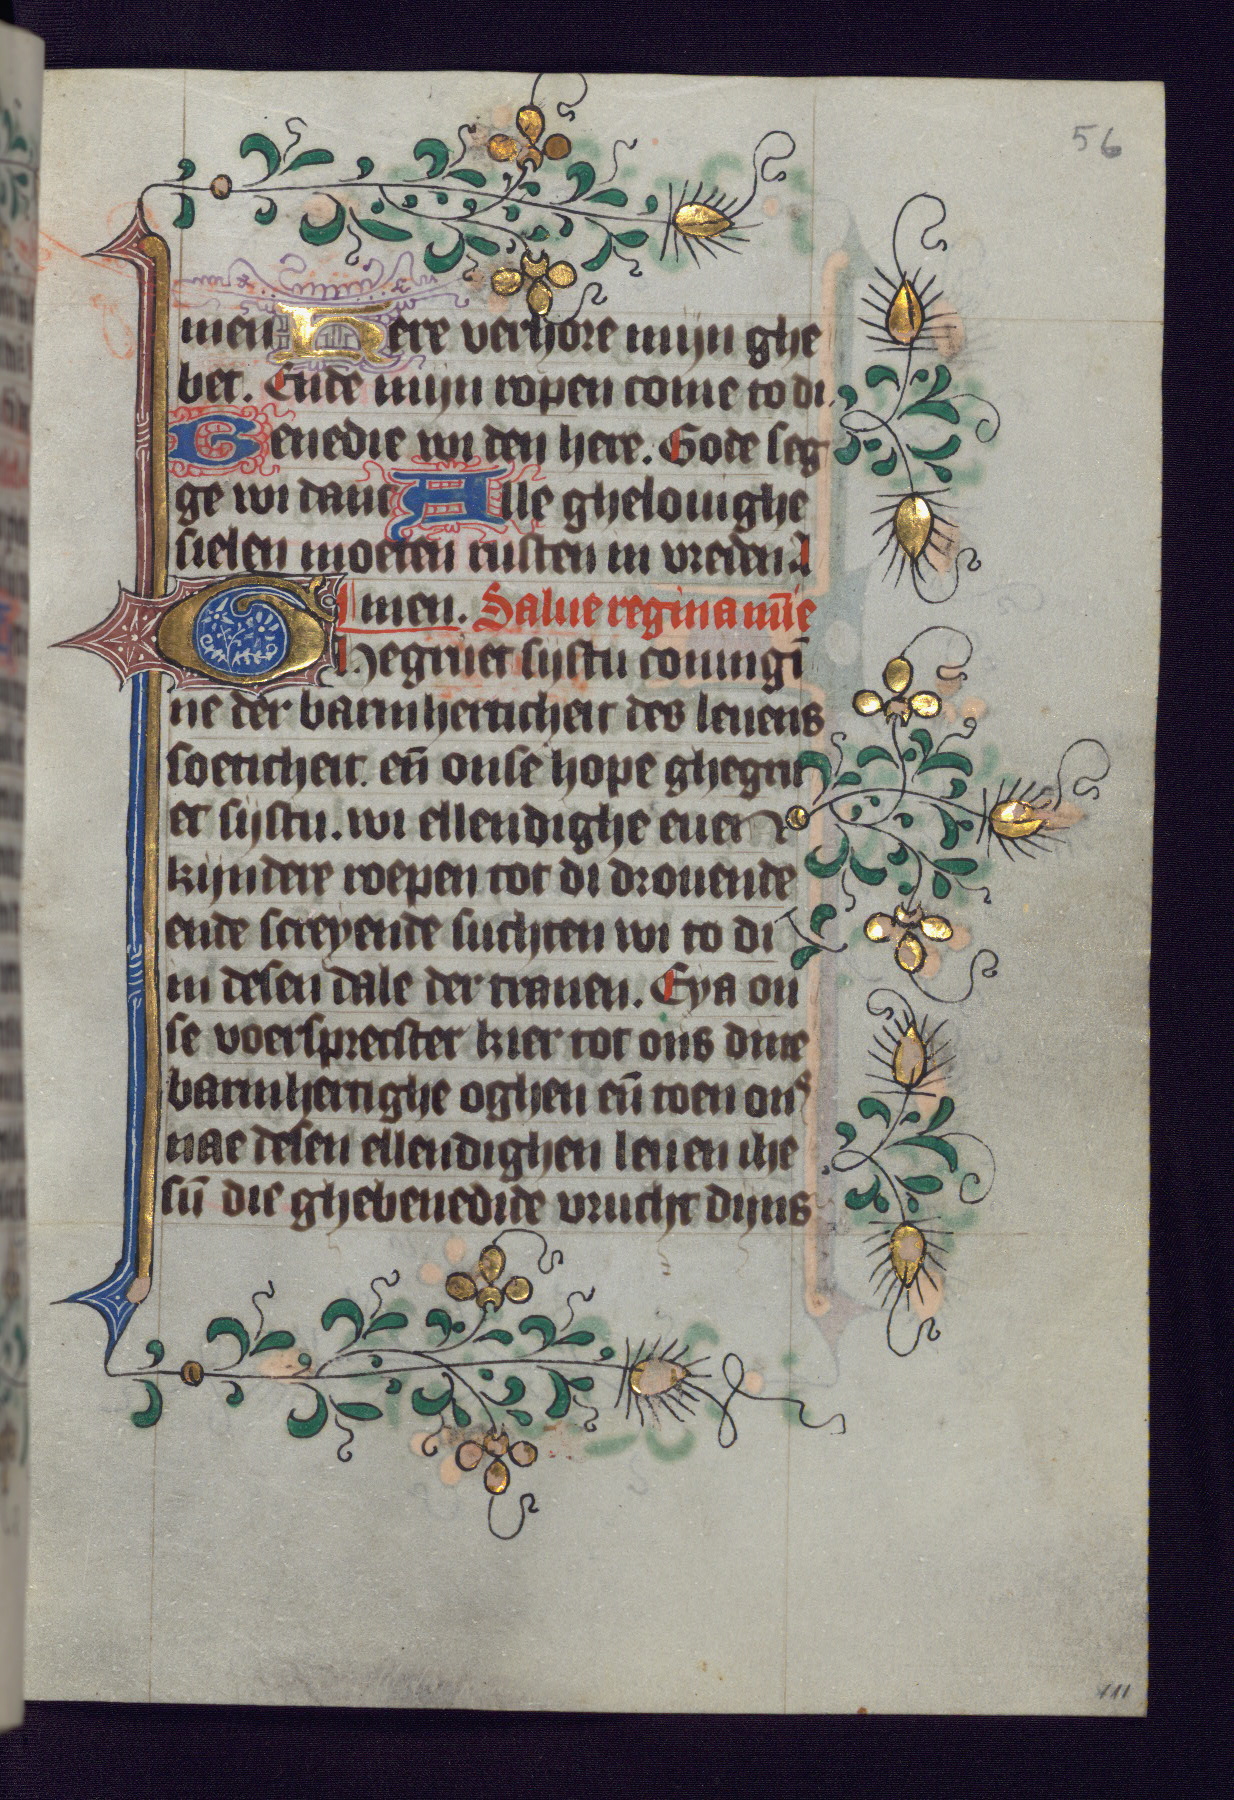 56
men Here verhore mijn ghe
bet. Ende mijn ropen come to di.
Benedie wi den here. Gode seg
ge wi danc Alle ghelouighe
sielen moeten rusten in vreden A
men. Salue regina mīe
Ghegruet sijstu coningī
ne der barmherticheit des leuens
soeticheit. en̄ onse hope ghegru
et sijstu. wi ellendighe euen
kijndere roepen tot di drouende
ende screyende suchten wi to di
in desen dale der tranen. Eya on
se voersprecster kier tot ons dine
barmhertighe oghen en̄ toen ons
nae desen ellendighen leuen ihe
sū die ghebenedide vrucht dijns
111